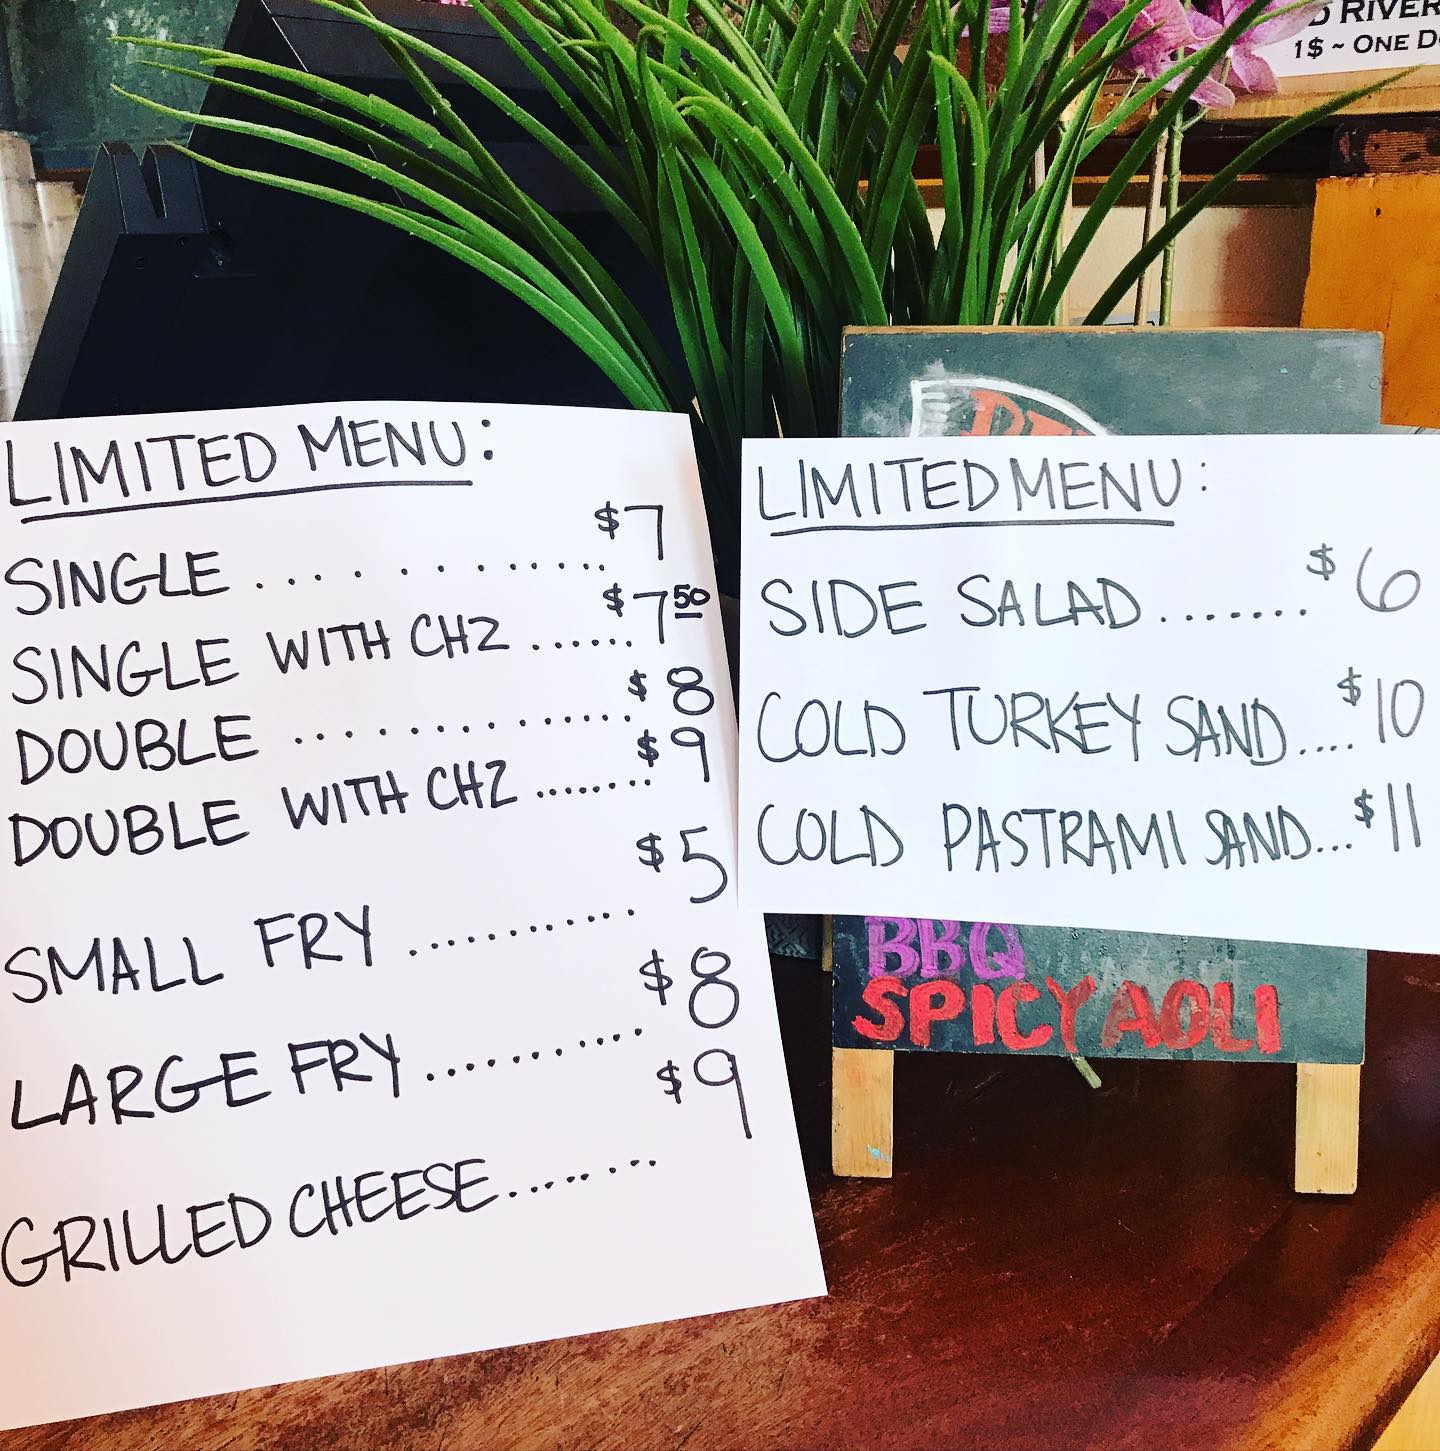 LIMITED MENU:
SINGLE ............ $7
SINGLE WITH CHZ ...... $7 50
DOUBLE ............. $8
DOUBLE WITH CHZ ........ $9
SMALL FRY ........... $5
LARGE FRY .......... $8
GRILLED CHEESE........ $9
LIMITED MENU:
SIDE SALAD ....... $6
COLD TURKEY SAND.... $10
COLD PASTRAMI SAND... $11
BBQ
SPICY AOLI
RIVER
1$ ~ ONE